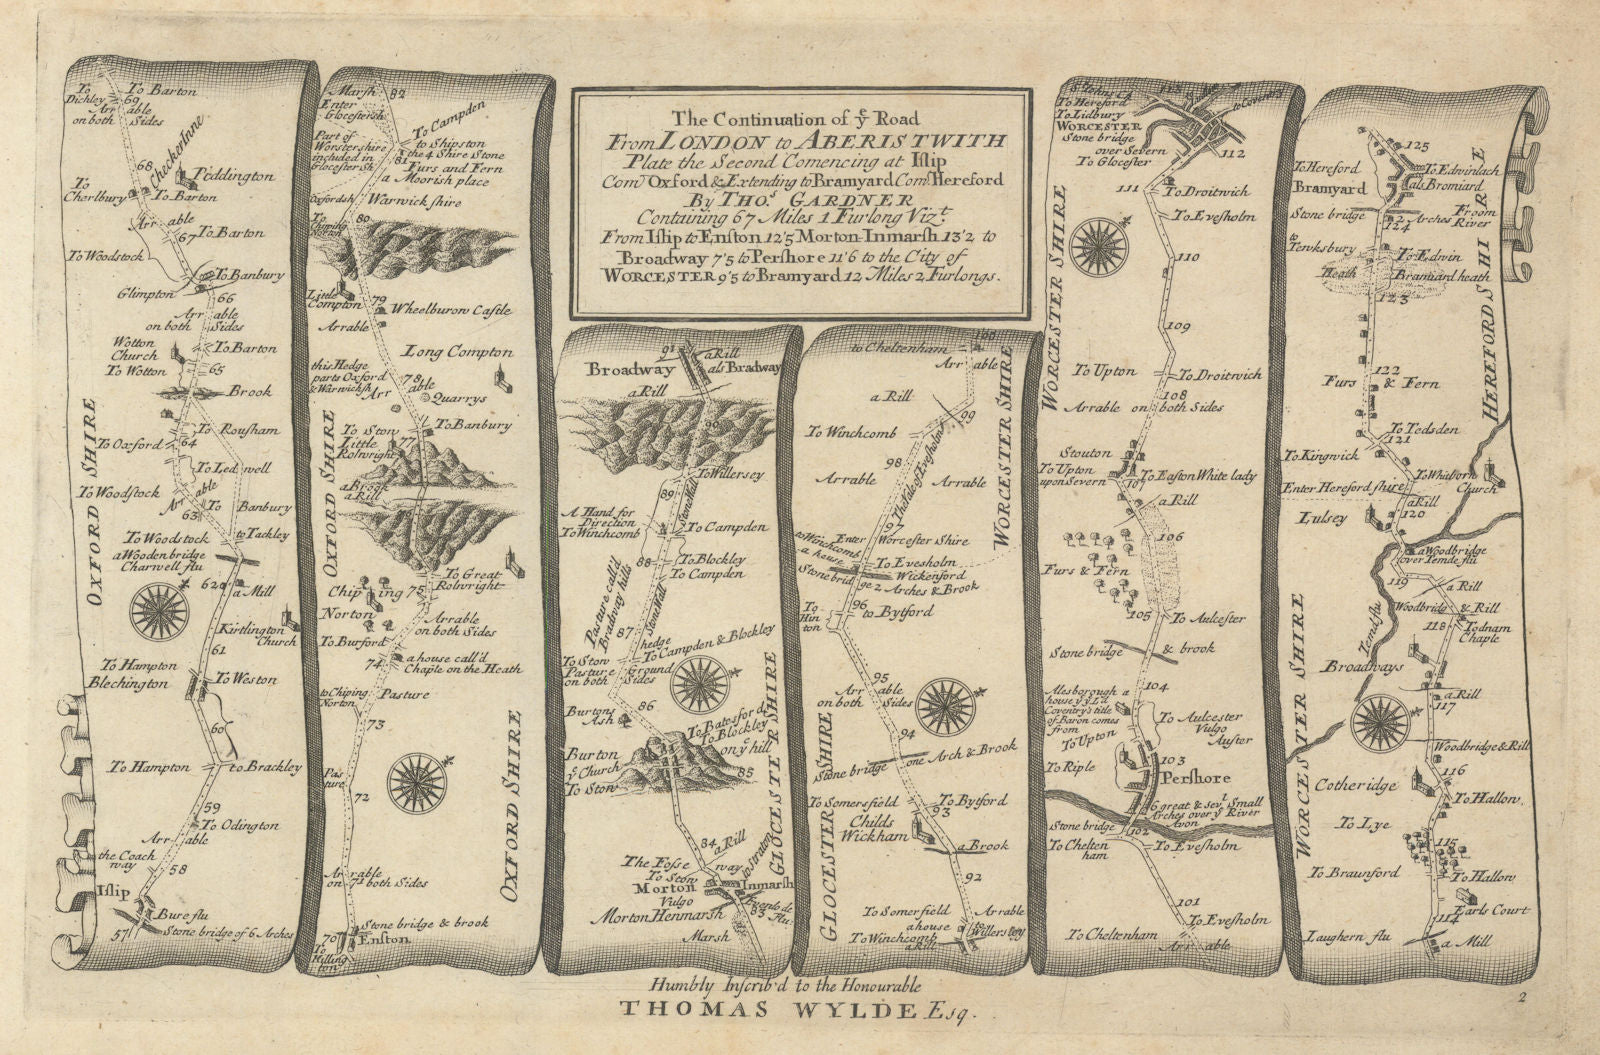 The Continuation of yͤ Road
From LONDON to ABERISTWITH
Plate the Second Comencing at Iſlip
Com: Oxford & Extending to Bramyard Com: Hereford
By THOˢ. GARDNER
Containing 67 Miles 1 Furlong Vizᵗ.
From Iſlip to Enſton 12'5 Morton-Inmarsh 13'2 to
Broadway 7'5 to Perſhore 11'6 to the City of
WORCESTER 9'5 to Bramyard 12 Miles 2 Furlongs.
To Dichley
To Barton
69
Arr able
on both Sides
68
Checken Inne
Peddington
To Charlbury
To Barton
Arr able
67
To Barton
To Woodstock
To Banbury
Glimpton
66
Arr able
on both Sides
Wotton
Church
To Barton
To Wotton
65
Brook
To Rouſham
To Oxford
64
To Ledwell
To Woodstock
Arr able
63
To Banbury
To Woodstock
to Tackley
a Wooden bridge
Charwell flu
62
a Mill
OXFORD SHIRE
Kirtlington
Church
61
To Hampton
Blechington
To Weston
60
To Hampton
to Brackley
59
To Odington
Arr able
the Coach
way
58
Iſlip
Bure flu
57
Stone bridge of 6 Arches
Marsh
82
Enter
Gloceſtersh
To Campden
Part of
Worstershire
included in
Gloceſtersh
to Shipston
the 4 Shire Stone
81
Furs and Fern
a Moorish place
Oxfordsh
Warwick shire
To
Chiping
Norton
80
Little
Compton
79
Wheelburow Caſtle
Arrable
Long Compton
this Hedge
parts Oxford
& Warwicksh
78
Arr able
Quarrys
To Stow
To Banbury
Little
Rolwright
77
a Brook
a Rill
OXFORD SHIRE
To Great
Rolwright
Chiping
75
Norton
Arrable
on both Sides
To Burford
74
a house call'd
Chaple on the Heath
to Chiping
Norton
Pasture
73
Pas
ture
72
OXFORD SHIRE
Arrable
on both Sides
71
Stone bridge & brook
70
Enſton
To
Killing
ton
91
a Rill
Broadway
als Bradway
a Rill
90
To Willersey
89
Stone Wall
A Hand for
Direction
To Winchcomb
To Campden
88
To Blockley
To Campden
Pasture call'd
Bradway hills
Stone Wall
87
hedge
To Campden & Blockley
To Stow
Pasture Ground
on both Sides
86
Burtons
Ash
To Batesford
To Blockley
on yͤ hill
Burton
yͤ Church
To Stow
85
GLOCESTER SHIRE
84
a Rill
The Foſse way
to Stratton
To Stow
Morton Inmarsh
Vulgo
Morton Henmarsh
Euenlode
flu.
83
Marsh
100
to Cheltenham
Arr able
a Rill
99
To Winchcomb
The Vale of Eveſholm
98
Arrable
Arrable
WORCESTER SHIRE
97
Enter Worcester Shire
to Winchcomb
a house
To Eveſholm
Wickenford
Stone bridge 2 Arches & Brook
96
To
Hin
ton
to Bytford
95
Arr able
on both Sides
94
Stone bridge one Arch & Brook
To Somersfield
To Bytford
Childs
Wickham
93
a Brook
92
GLOCESTER SHIRE
To Somerfield
Arrable
a house
To Willersley
To Winchcomb
a Rill
Sᵗ Johns Ch
113
To Hereford
to Coventry
To Lidbury
WORCESTER
Stone bridge
over Severn
112
To Glocester
111
To Droitwich
To Eveſholm
WORCESTER SHIRE
110
109
To Upton
To Droitwich
108
Arrable on both Sides
Stouton
To Upton
upon Severn
To Easton White lady
107
a Rill
106
Furs & Fern
105
To Aulcester
Stone bridge & brook
104
Alesborough a
house yͤ Lᵈ
Coventry's title
of Baron comes
from
To Aulcester
Vulgo
Auster
To Upton
To Riple
103
Perſhore
6 great & sevˡ Small
Arches over yͤ River
Avon
Stone bridge
102
To Chelten
ham
To Eveſholm
101
To Eveſholm
To Cheltenham
Arr able
125
To Hereford
To Edwinlach
Bramyard
als Bromiard
Stone bridge
2 Arches
Froom
River
124
to
Tewksbury
To Edwin
Heath
Bramiard heath
123
HEREFORD SHIRE
122
Furs & Fern
To Tedsden
121
To Kingwick
To Whitborn
Church
Enter Hereford shire
a Rill
Lulsey
120
a Woodbridge
over Temde flu
119
a Rill
Woodbridg & Rill
118
Todnam
Chaple
Temd flu
Broadways
a Rill
117
WORCESTER SHIRE
Woodbridge & Rill
116
Cotheridge
To Hallow
To Lye
115
To Braunford
To Hallow
Earls Court
114
Laughern flu
a Mill
Humbly Inſcrib'd to the Honourable
THOMAS WYLDE Esq.
2